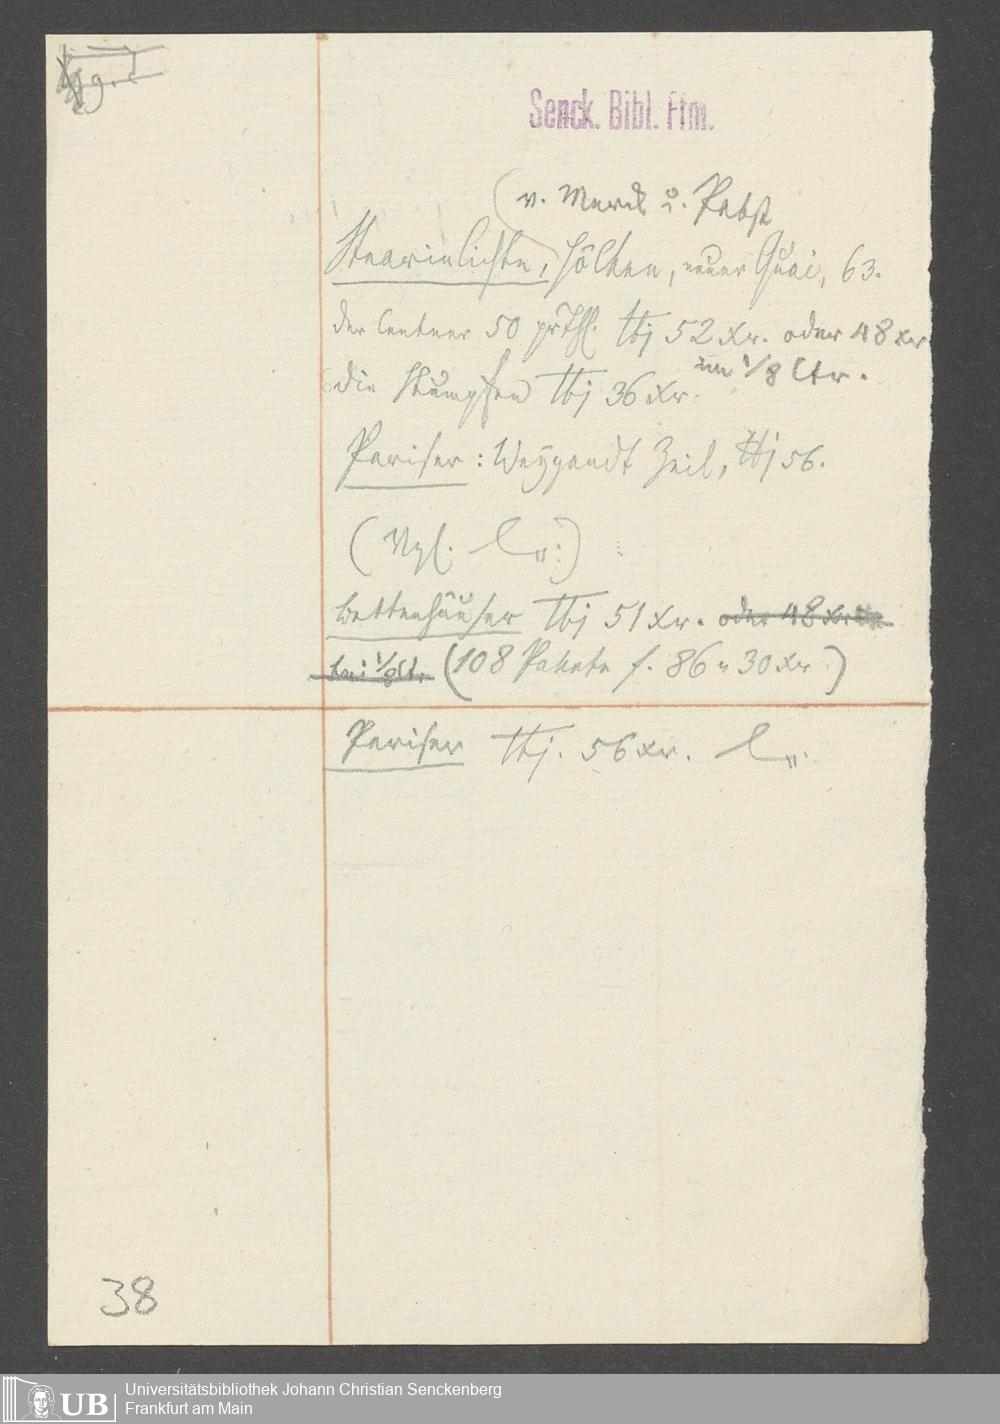 Senck. Bibl. Ffm.
(v. Merck u. Pabst
Stearinlichte, Hölken, neuer Quai, 63.
der Centner 50 prThl. tbj 52 Xr. oder 48 xr
im 1/8 Ctr.
die Stumpfen tbj 36 Xr.
Pariser: Weygandt Zeil, tbj 56.
(Vgl.
Bettenhäuser tbj 51 Xr. oder 48 Xr.
bei 1/8 Ct. (108 Pakete f. 86 " 30 Xr.)
Pariser tbj. 56 xr.
38
UB
Universitätsbibliothek Johann Christian Senckenberg
Frankfurt am Main